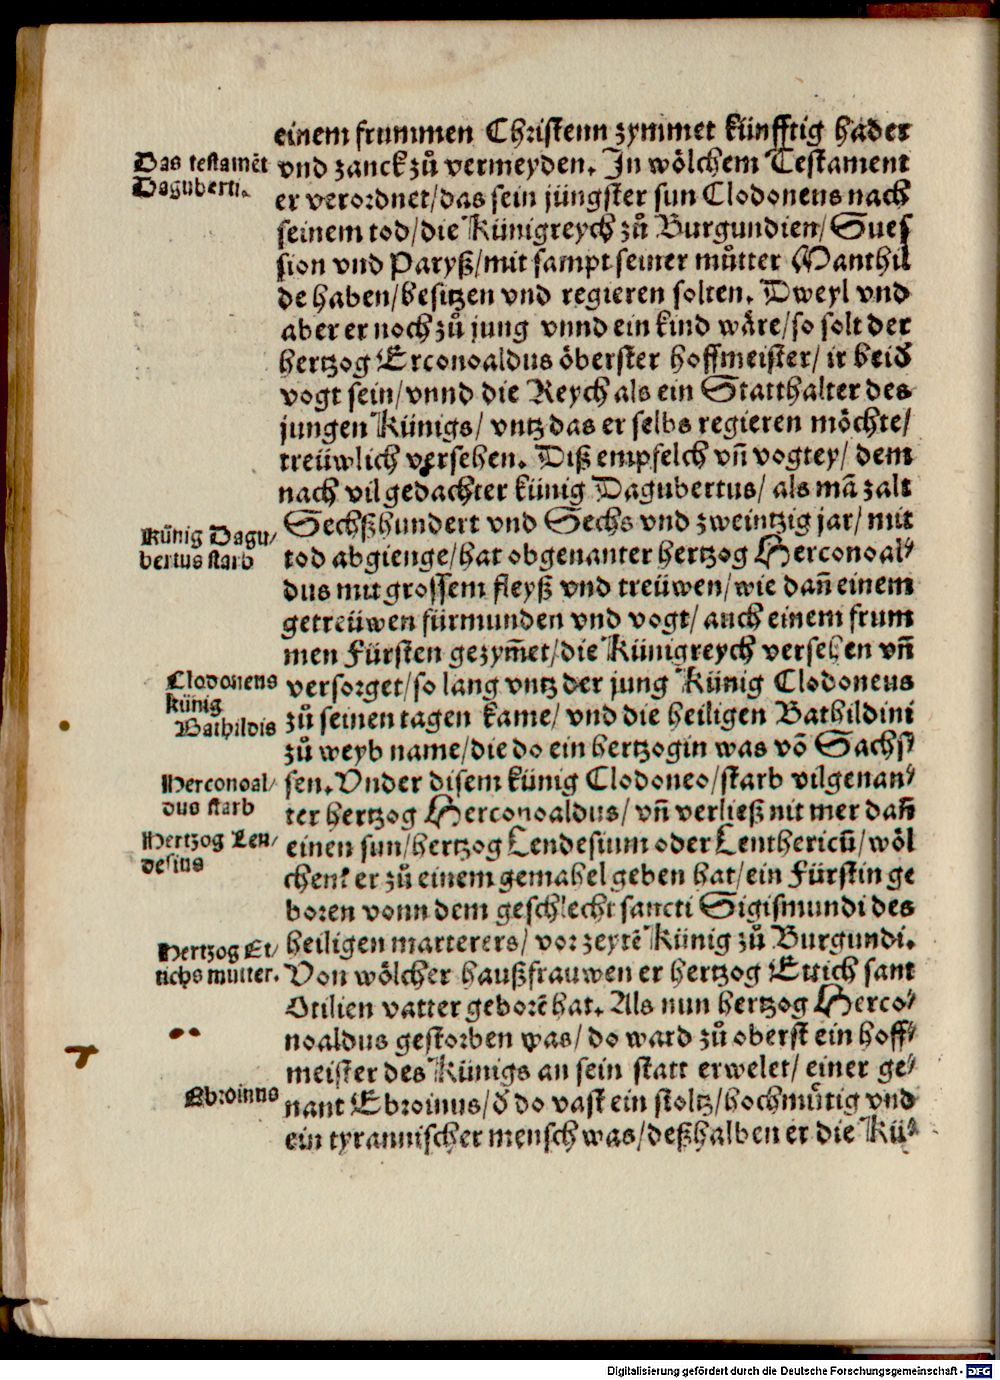 einem frummen Christenn zymmet künfftig hader
Das testamēt
Daguberti.
vnd zanck zů vermeyden. In wölchem Testament
er verordnet/das sein jüngster sun Clodoneus nach
seinem tod/die Künigreych zů Burgundien/Sues
sion vnd Paryß/mit sampt seiner můtter Manthil
de haben/besitzen vnd regieren solten. Dweyl vnd
aber er noch zů jung vnnd ein kind wäre/so solt der
hertzog Erconoaldus öberster hoffmeister/ir beid
vogt sein/vnnd die Reych als ein Statthalter des
jungen Künigs/vntz das er selbs regieren möchte/
treüwlich versehen. Diß empfelch vn̄ vogtey/dem
nach vil gedachter künig Dagubertus/als mā zalt
Künig Dagu/
bertus starb
Sechßhundert vnd Sechs vnd zweintzig jar/mit
tod abgienge/hat obgenanter hertzog Herconoal⸗
dus mit grossem fleyß vnd treüwen/wie dan̄ einem
getreüwen fürmunden vnd vogt/auch einem frum
men Fürsten gezym̄et/die Künigreych versehen vn̄
Clodoneus
künig
Bathildis
versorget/so lang vntz der jung Künig Clodoneus
zů seinen tagen kame/vnd die heiligen Bathildini
zů weyb name/die do ein hertzogin was vō Sachs⸗
Herconoal/
dus starb
sen. Vnder disem künig Clodoneo/starb vilgenan⸗
ter hertzog Herconoaldus/vn̄ verließ nit mer dan̄
Hertzog Len/
desius
einen sun/hertzog Lendesium oder Lenthericū/wöl
chem er zů einem gemahel geben hat/ein Fürstin ge
boren vonn dem geschlecht sancti Sigismundi des
heiligen marterers/vor zeytē Künig zů Burgundi.
Hertzog Et/
tichs mutter.
Von wölcher haußfrauwen er hertzog Ettich sant
Otilien vatter geborē hat. Als nun hertzog Herco⸗
noaldus gestorben was/do ward zů oberst ein hoff⸗
meister des Künigs an sein statt erwelet/einer ge⸗
Ebroinus
nant Ebroinus/d do vast ein stoltz/hochmůtig vnd
ein tyrannischer mensch was/deßhalben er die Kü⸗
Digitalisierung gefördert durch die Deutsche Forschungsgemeinschaft - DFG